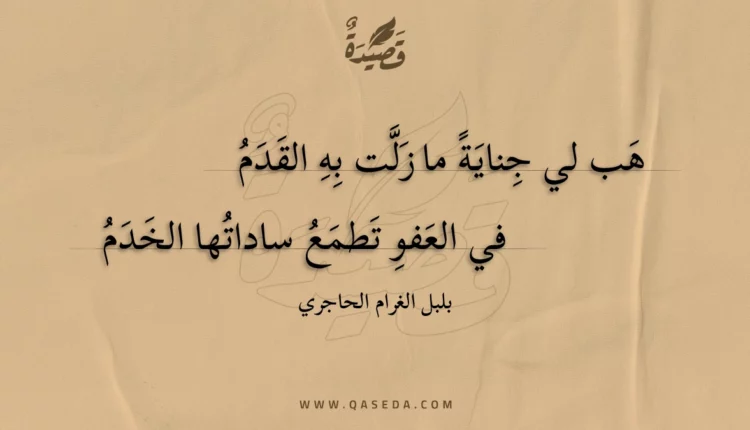 قَصِيْدَةٌ
هَب لي جِنايَةً ما زَلَّت بِهِ القَدَمُ
في العَفوِ تَطمَعُ ساداتُها الخَدَمُ
بلبل الغرام الحاجري
WWW.QASEDA.COM